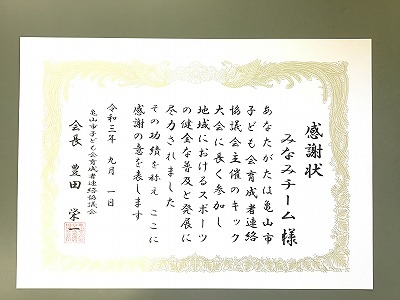 感謝状
みなみチーム 様
あなたがたは亀山市
子ども会育成者連絡
協議会主催のキック
大会に長く参加し
地域におけるスポーツ
の健全な普及と発展に
尽力されました
その功績を称え ここに
感謝の意を表します
令和三年 九月 一日
亀山市子ども会育成者連絡協議会
会長 豊田 栄